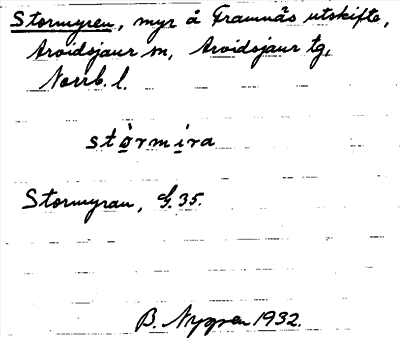 Stormyren, myr å Framnäs utskifte,
Arvidsjaur sn, Arvidsjaur tg,
Norrb. l.
stòrmira
Stormyran, G. 35.
B. Nygren 1932.